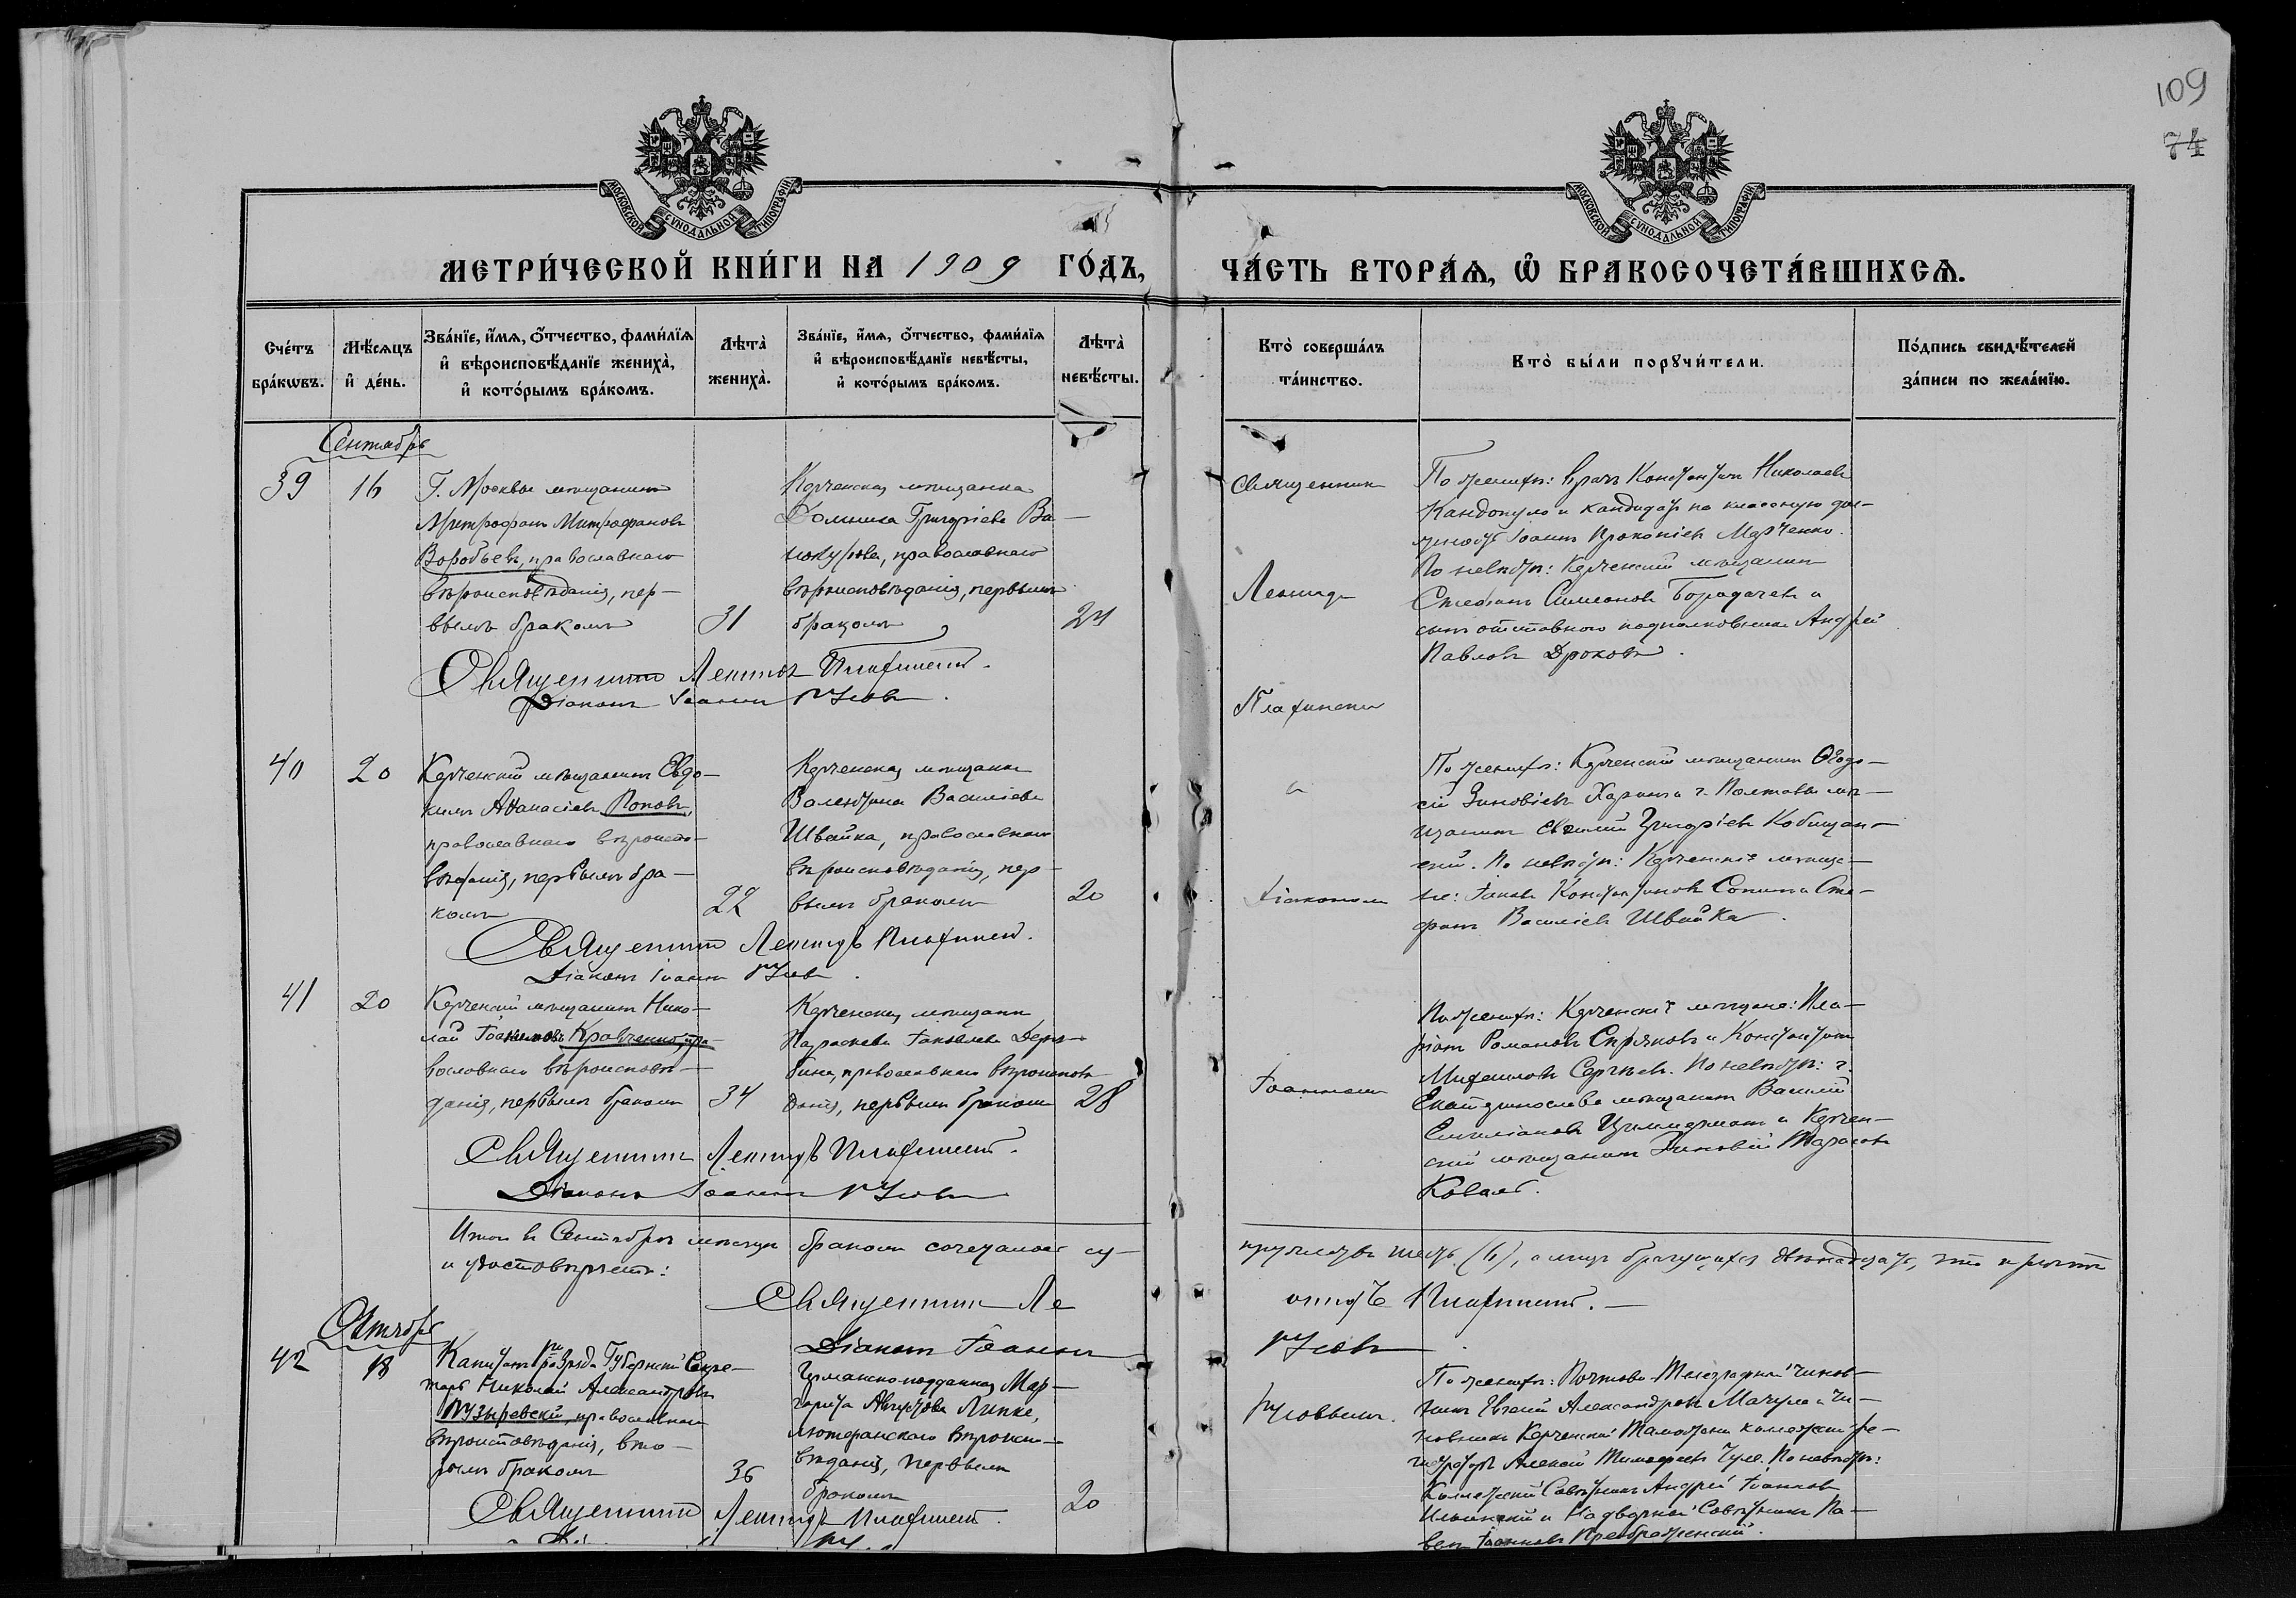 109
74
МОСКОВСКОЙ СѴНОДАЛЬНОЙ ТИПОГРАФІИ
МОСКОВСКОЙ СѴНОДАЛЬНОЙ ТИПОГРАФІИ
МЕТРИ́ЧЕСКОЙ КНИ́ГИ НА 1909 ГО́ДЪ,
ЧА́СТЬ ВТОРА́Ѧ, Ѡ҆ БРАКОСОЧЕТА́ВШИХСѦ.
Сче́тъ
бра́кѡвъ.
Мѣ́сяцъ
и҆ де́нь.
Зва́нїе, и҆́мѧ, ѻ҆́тчество, фами́лїѧ
и҆ вѣроисповѣ́данїе жениха̀,
и҆ кото́рымъ бра́комъ.
Лѣта̀
жениха̀.
Зва́нїе, и҆́мѧ, ѻ҆́тчество, фами́лїѧ
и҆ вѣроисповѣ́данїе невѣ́сты,
и҆ кото́рымъ бра́комъ.
Лѣта̀
невѣ́сты.
Кто̀ соверша́лъ
та́инство.
Кто̀ бы́ли порꙋчи́тели.
По́дпись свидѣ́телей
за́писи по жела́нїю.
Сентябрь
39
16
Г. Москвы мѣщанинъ
Митрофанъ Митрофановъ
Воробьевъ, православнаго
вѣроисповѣданія, пер-
вымъ бракомъ
31
Керченская мѣщанка
Домника Григоріева Ва-
православнаго
вѣроисповѣданія, первымъ
бракомъ
24
Священникъ
Леонидъ
По женихѣ: врачъ Константинъ Николаевъ
Кандопуло и кандидатъ на классную дол-
жность Іоаннъ Прокопіевъ Марченко.
По невѣстѣ: Керченскій мѣщанинъ
Стефанъ Симеоновъ Бородачевъ и
сынъ отставного подполковника Андрей
Павловъ Дроковъ.
Священникъ Леонидъ
Діаконъ Іоаннъ
40
20
Керченскій мѣщанинъ Евдо-
кимъ Аѳанасіевъ Поповъ,
православнаго вѣроиспо-
вѣданія, первымъ бра-
комъ
22
Керченская мѣщанка
Валентина Василіева
Швайка, православнаго
вѣроисповѣданія, пер-
вымъ бракомъ
20
съ
діакономъ
По женихѣ: Керченскій мѣщанинъ Ѳеодо-
сій Зиновіевъ и г. Полтавы мѣ-
щанинъ Григоріевъ
скій. По невѣстѣ: Керченскіе мѣща-
не: Іаковъ Константиновъ и Сте-
фанъ Василіевъ Швайка.
Священникъ Леонидъ
Діаконъ Іоаннъ
41
20
Керченскій мѣщанинъ Нико-
лай Кравченко, пра-
вославнаго вѣроисповѣ-
данія, первымъ бракомъ
34
Керченская мѣщанка
Параскева Іаковлева
православнаго вѣроисповѣ-
данія, первымъ бракомъ
28
Іоанномъ
По женихѣ: Керченскіе мѣщане: Ила-
ріонъ Романовъ и Константинъ
Михаиловъ Сергѣевъ. По невѣстѣ: г.
Екатеринослава мѣщанинъ Василій
Емиліановъ Циммерманъ и Керчен-
скій мѣщанинъ Зиновій Тарасовъ
Коваль.
Священникъ Леонидъ
Діаконъ Іоаннъ
Итого въ Сентябрѣ мѣсяцѣ бракомъ сочеталось су-
пружествъ шесть (6), а лицъ брачущихся двѣнадцать, что вѣрно
и удостовѣряемъ:
Священникъ Ле
онидъ
Діаконъ Іоаннъ
Октябрь
42
18
Капитанъ разряда Губернскій Секре-
тарь Николай Александровъ
Пузыревскій, православнаго
вѣроисповѣданія, вто-
рымъ бракомъ
36
Германско-подданная Мар-
гарита Августова Липке,
лютеранскаго вѣроиспо-
вѣданія, первымъ
бракомъ
20
По женихѣ: Почтово-Телеграфный чинов-
никъ Евгеній Александровъ Мачула и чи-
новникъ Керченской Таможни коллежскій ре-
гистраторъ Алексій Тимофеевъ По невѣстѣ:
Коллежскій Совѣтникъ Андрей Іоанновъ
Ильинскій и Надворный Совѣтникъ Па-
велъ Іоанновъ Преображенскій.
Священникъ Леонидъ